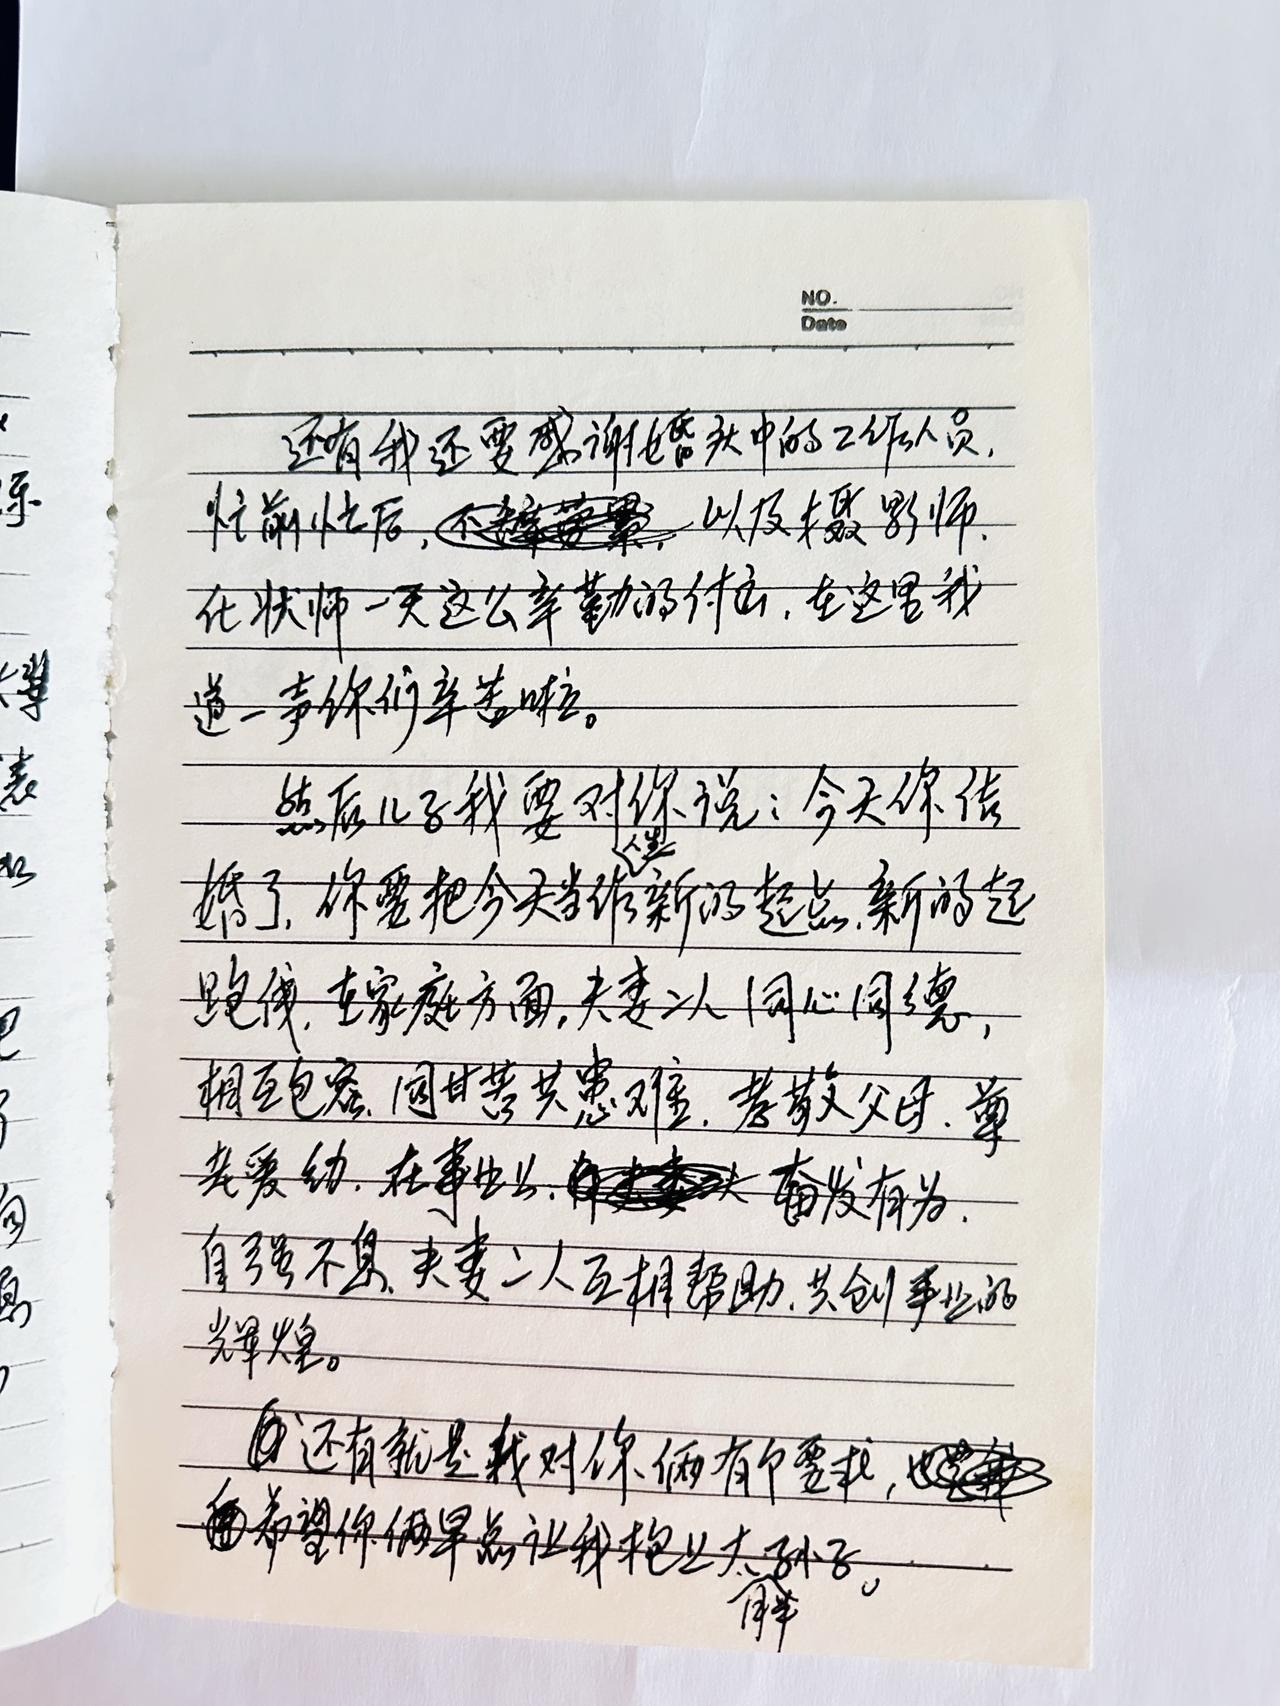 NO.
Date
还有我还要感谢婚庆中的工作人员,
忙前忙后,以及摄影师、
化状师一天这么辛勤的付出,在这里我
道一声你们辛苦啦。
然后儿子我要对你说:今天你结
婚了,你要把今天当作人生新的起点,新的起
跑线,在家庭方面,夫妻二人同心同德,
相互包容、同甘苦共患难,孝敬父母、尊
老爱幼,在事业上,奋发有为、
自强不息,夫妻二人互相帮助,共创事业的
辉煌。
还有就是我对你俩有个要求,
希望你俩早点让我抱上大胖孙子。